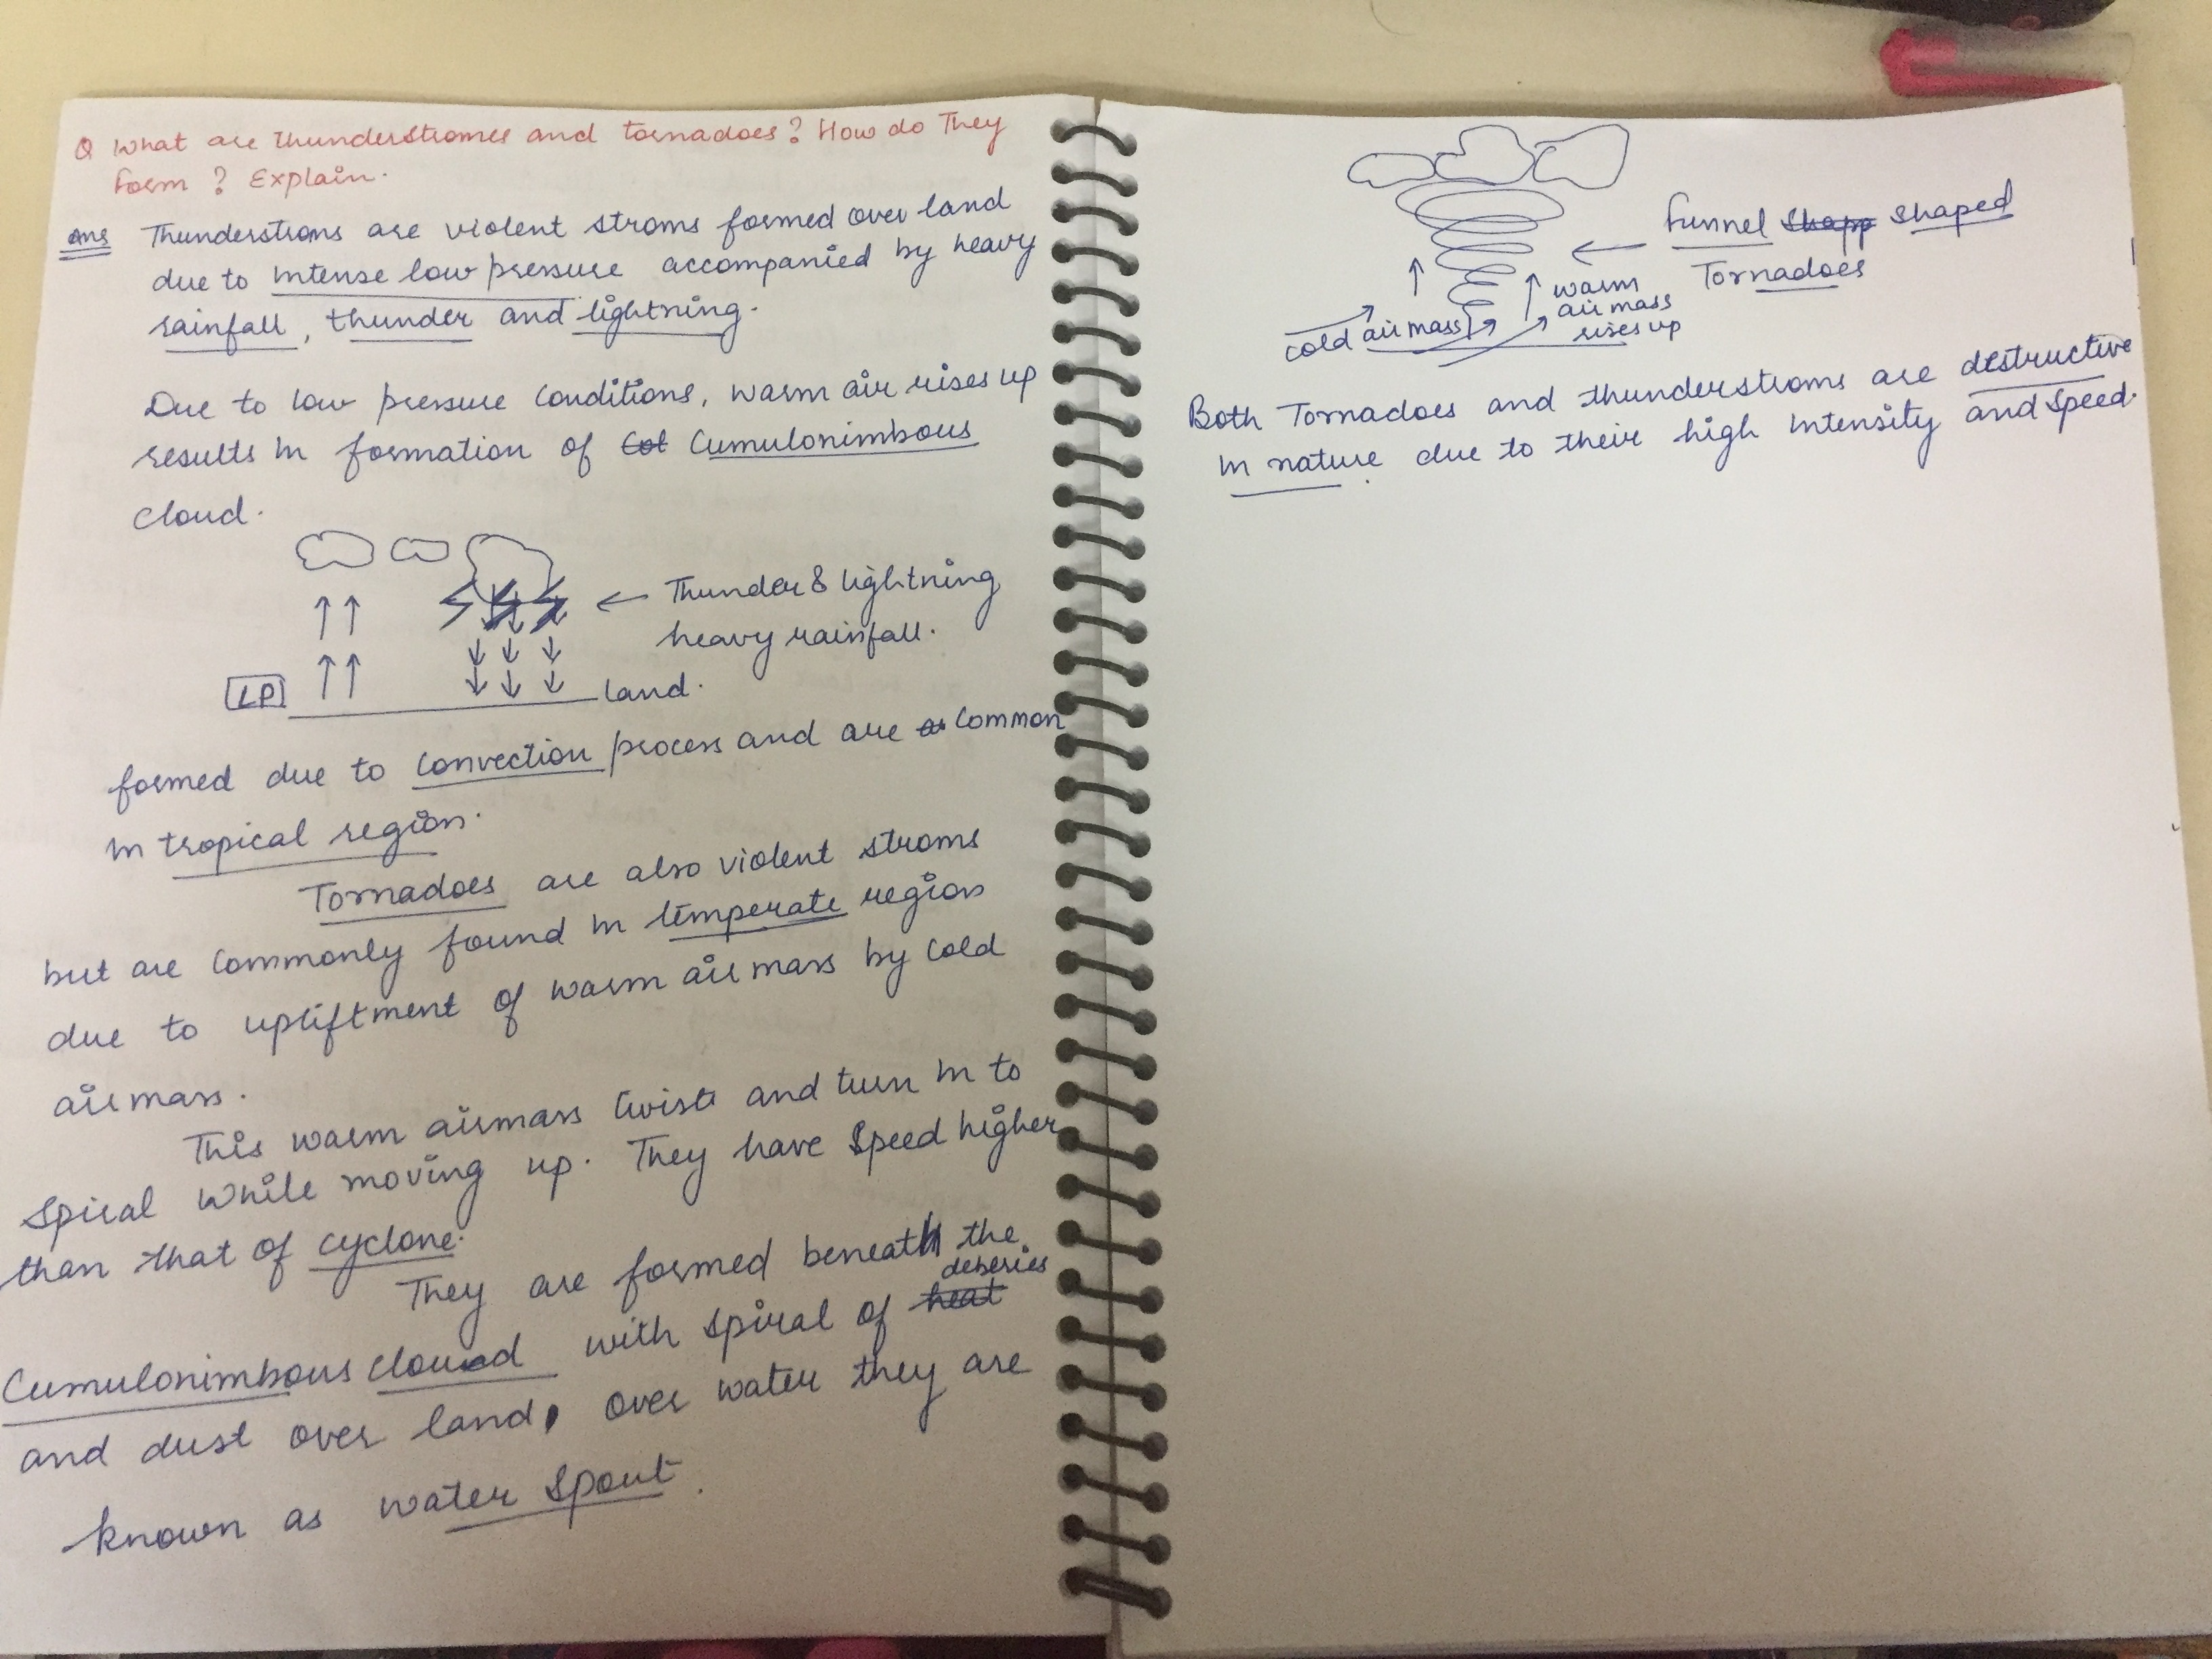 Q What are thunderstromes and tornadoes? How do They
form? Explain.
Ans Thunderstroms are violent stroms formed over land
due to intense low pressure accompanied by heavy
rainfall, thunder and lightning.
Due to low pressure conditions, warm air rises up
results in formation of Cumulonimbous
cloud.
Thunder & lightning
heavy rainfall.
LP
land.
formed due to convection process and are common
in tropical region.
Tornadoes are also violent stroms
but are commonly found in temperate region
due to upliftment of warm air mass by cold
air mass.
This warm airmass twists and turn in to
spiral while moving up. They have speed higher
than that of cyclone.
They are formed beneath the
Cumulonimbous cloud with spiral of deberies
and dust over land, over water they are
known as water spout.
funnel shaped
Tornadoes
warm
air mass
rises up
cold air mass
Both Tornadoes and thunderstroms are destructive
in nature due to their high intensity and speed.